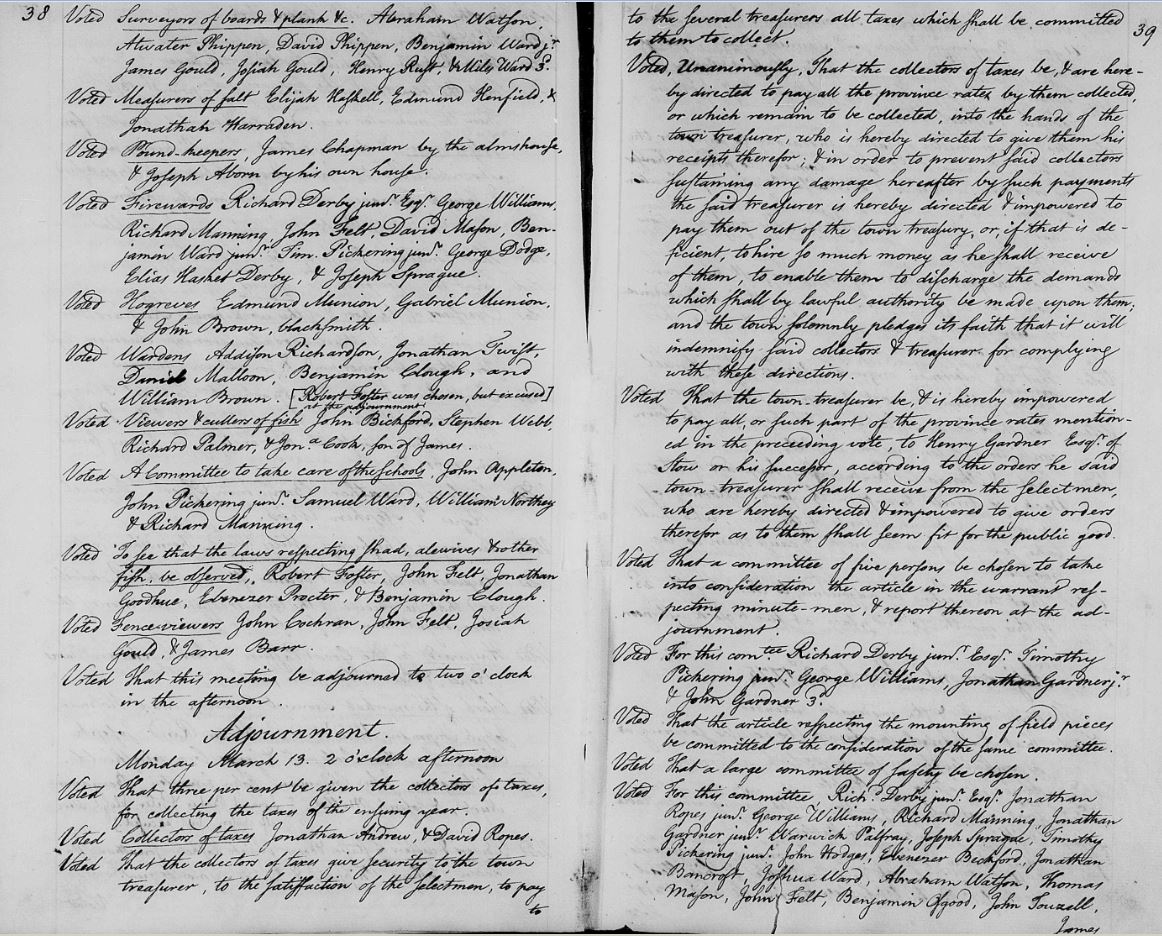 38
Voted Surveyors of boards & plank &c. Abraham Watson,
Atwater Phippen, David Phippen, Benjamin Ward jr.
James Gould, Josiah Gould, Henry Rust, & Miles Ward 3d.
Voted Measurers of salt Elijah Haskell, Edmund Henfield, &
Jonathan Harraden.
Voted Pound-keepers, James Chapman by the almshouse,
& Joseph Aborn by his own house.
Voted Firewards Richard Derby junr. Esqr. George Williams,
Richard Manning, John Felt David Mason, Ben-
jamin Ward junr. Tim. Pickering junr. George Dodge,
Elias Hasket Derby, & Joseph Sprague.
Voted Hogreves Edmund Munion, Gabriel Munion,
& John Brown, blacksmith.
Voted Wardens Addison Richardson, Jonathan Twist,
Daniel Malloon, Benjamin Clough, and
William Brown. [Robert Foster was chosen, but excused]
at the adjournment
Voted Viewers & cullers of fish John Bickford, Stephen Webb,
Richard Palmer, & Jona. Cook, son of James.
Voted A Committee to take care of the schools, John Appleton,
John Pickering junr. Samuel Ward, William Northey
& Richard Manning.
Voted To see that the laws respecting shad, alewives & other
fish, be observed, Robert Foster, John Felt, Jonathan
Goodhue, Ebenezer Procter, & Benjamin Clough.
Voted Fence-viewers John Cochran, John Felt, Josiah
Gould, & James Barr.
Voted That this meeting be adjourned to two o'clock
in the afternoon.
Adjournment.
Monday March 13. 2 o'clock afternoon
Voted That three per cent be given the collectors of taxes,
for collecting the taxes of the ensuing year.
Voted Collectors of taxes Jonathan Andrew, & David Ropes.
Voted That the collectors of taxes give security to the town
treasurer, to the satisfaction of the selectmen, to pay
to
39
to the several treasurers all taxes which shall be committed
to them to collect.
Voted, Unanimously, That the collectors of taxes be, & are here-
by directed to pay all the province rates by them collected,
or which remain to be collected, into the hands of the
town treasurer, who is hereby directed to give them his
receipts therefor; & in order to prevent said collectors
sustaining any damage hereafter by such payments
the said treasurer is hereby directed & impowered to
pay them out of the town treasury, or, if that is de-
ficient, to hire so much money as he shall receive
of them, to enable them to discharge the demands
which shall by lawful authority be made upon them;
and the town solemnly pledges its faith that it will
indemnify said collectors & treasurer for complying
with these directions.
Voted That the town-treasurer be, & is hereby impowered
to pay all, or such part of the province rates mention-
ed in the preceeding vote, to Henry Gardner Esqr. of
Stow or his successor, according to the orders he said
town-treasurer shall receive from the selectmen,
who are hereby directed & impowered to give orders
therefor as to them shall seem fit for the public good.
Voted That a committee of five persons be chosen to take
into consideration the article in the warrant res-
pecting minute-men, & report thereon at the ad-
journment.
Voted For this comtee Richard Derby junr. Esqr. Timothy
Pickering junr. George Williams, Jonathan Gardner jr.
& John Gardner 3d.
Voted That the article respecting the mounting of field pieces
be committed to the consideration of the same committee.
Voted That a large committee of safety be chosen.
Voted For this committee Richd. Derby junr. Esqr. Jonathan
Ropes junr. George Williams, Richard Manning, Jonathan
Gardner junr. Warwick Palfray, Joseph Sprague, Timothy
Pickering junr. John Hodges, Ebenezer Beckford, Jonathan
Bancroft, Joshua Ward, Abraham Watson, Thomas
Mason, John Felt, Benjamin Osgood, John Touzell,
James